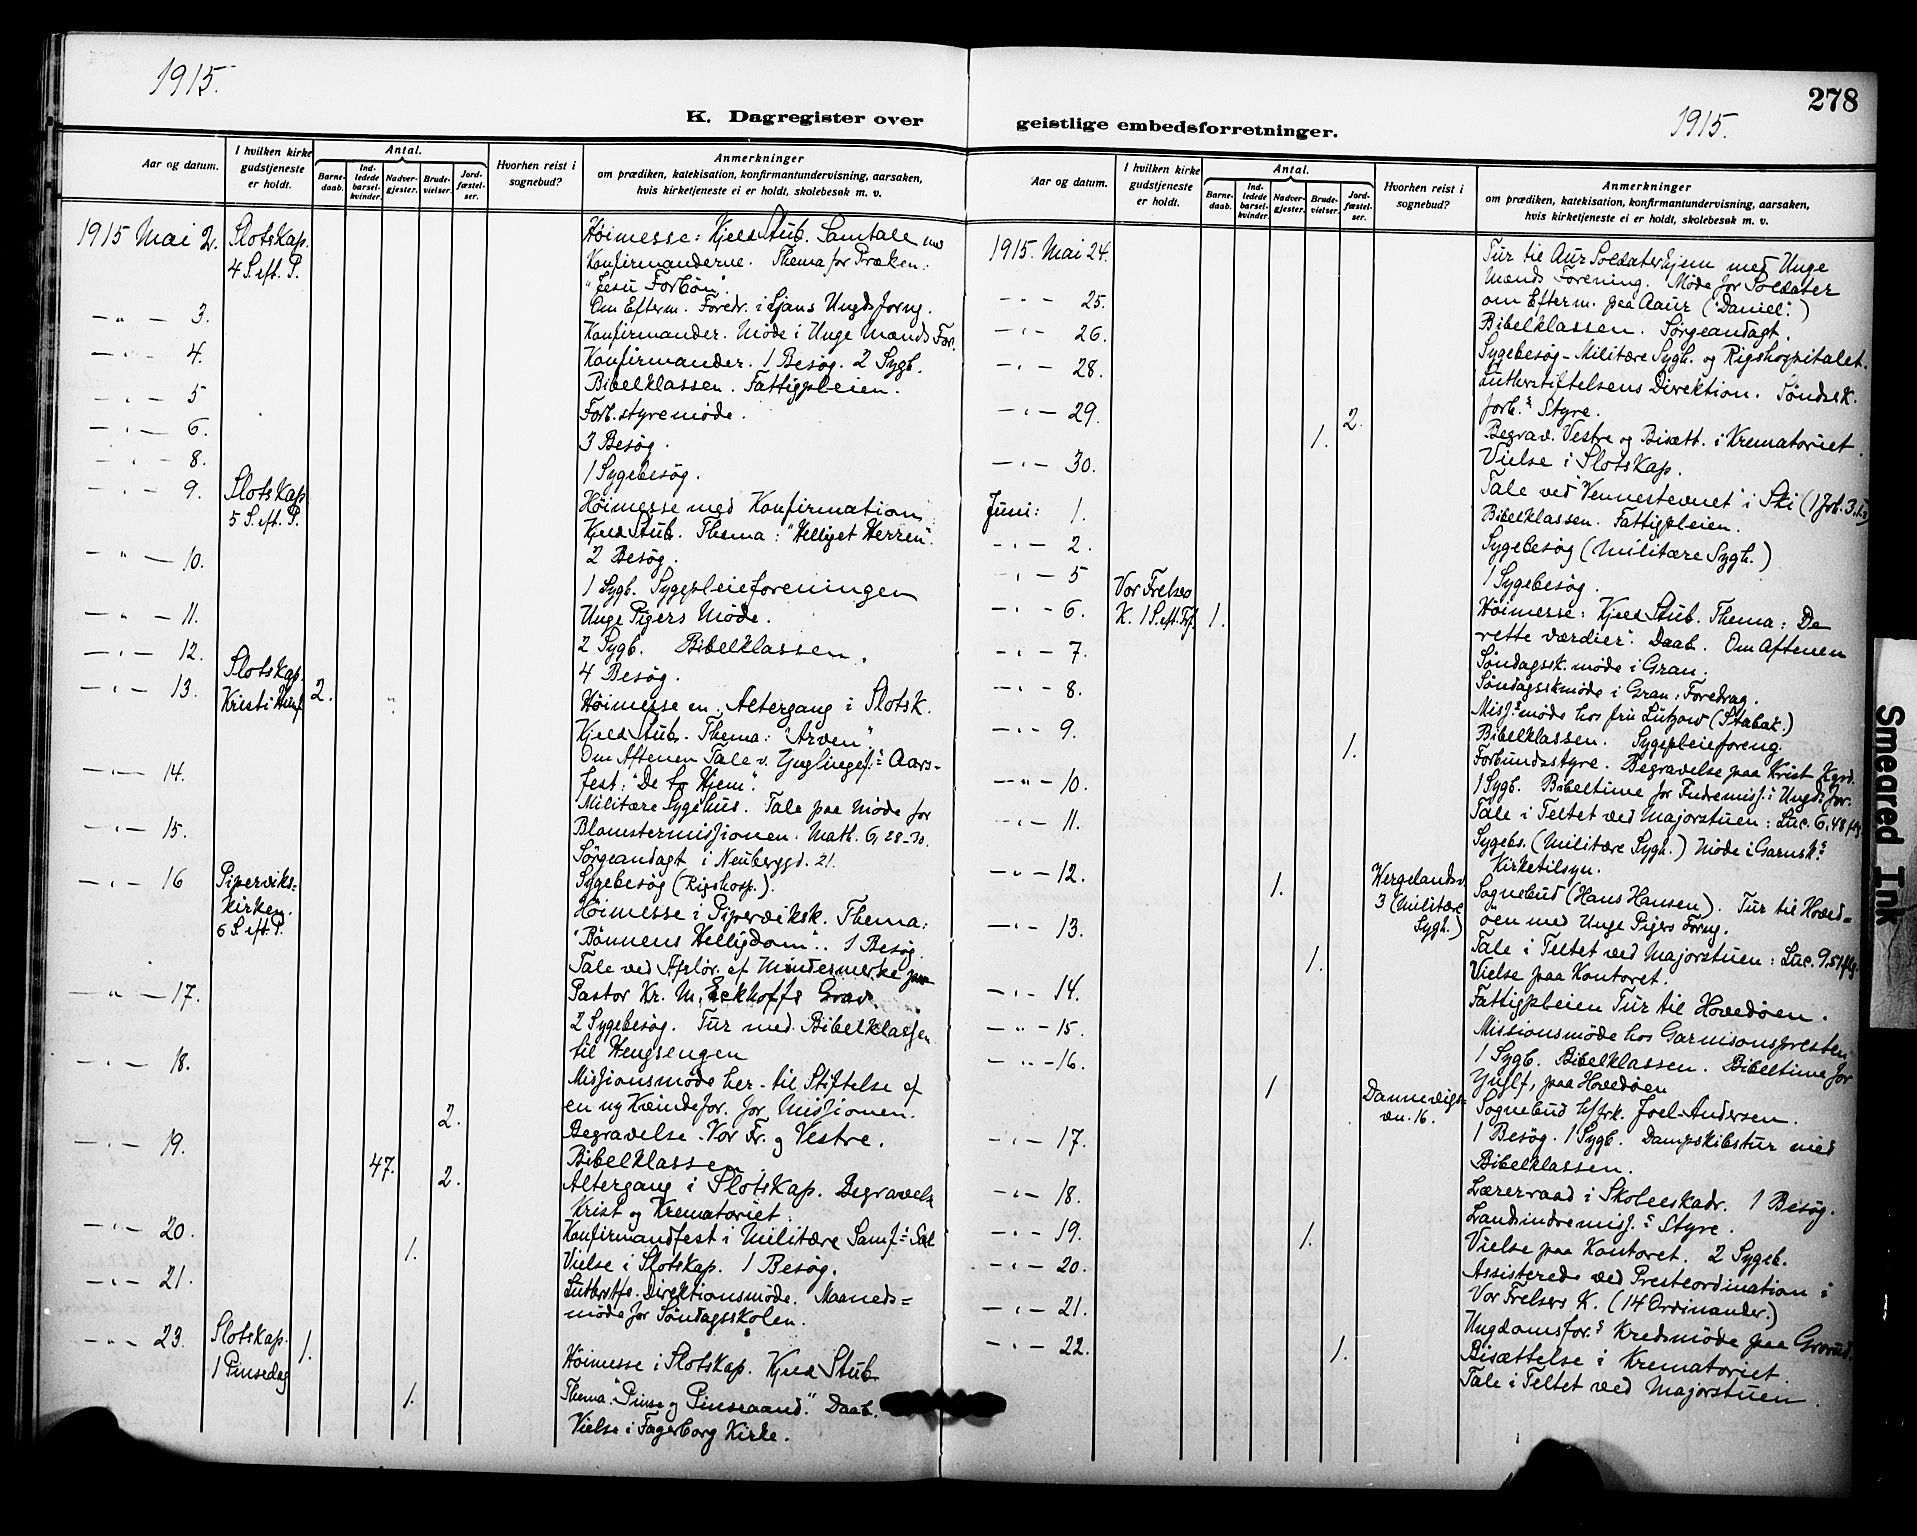 1915.
K. Dagregister over
Aar og datum.
I hvilken kirke gudstjeneste er holdt.
Antal.
Barne-daab.
Ind-ledede barsel-kvinder.
Nadver-gjester.
Brude-vielser.
Jord-fæstel-ser.
Hvorhen reist i sognebud?
Anmerkninger
om prædiken, katekisation, konfirmantundervisning, aarsaken,
hvis kirketjeneste ei er holdt, skolebesøk m. v.
1915 Mai 2. Slotskap. Høimesse: Kjeld Stub. Samtale m
4 S. eft. P. Konfirmanderne. Thema for Præken:
"Jesu Forbøn".
Om Efterm. Foredr. i Ljans Ungdsforng.
— " — 3. Konfirmander. Møde i Unge Mænds For.
— " — 4. Konfirmander. 1 Besøg. 2 Sygb.
— " — 5 Bibelklassen. Fattigpleien.
— " — 6. Forb.styremøde.
— " — 8. 3 Besøg.
1 Sygebesøg.
— " — 9. Slotskap Høimesse med Konfirmation
5 S. eft. P. Kjeld Stub. Thema: "Helliget Herren".
— " — 10. 2 Besøg.
1 Sygb. Sygepleieforeningen
— " — 11. Unge Pigers Møde.
— " — 12. 2 Sygb. Bibelklassen.
Slotskap. 4 Besøg.
— " — 13. Kristi Himf 2. Høimesse en. Altergang i Slotsk.
Kjeld Stub. Thema: "Arven"
Om Aftenen Tale v. Ynglingef.s Aars-
— " — 14. fest: "De to Hjem".
Militære Sygehus. Tale paa Møde for
— " — 15. Blomstermissionen. Math. 6, 28-30.
Sørgeandagt i Neuberggd. 21.
— " — 16 Piperviks- Sygebesøg (Rigshosp.).
kirken. Høimesse i Piperviksk. Thema:
6 S. eft. P. "Bønnens Helligdom". 1 Besøg
Tale ved Afslør. af Mindesmerke paa
— " — 17. Pastor Kr. M. Eckhoffs Grav.
2 Sygebesøg. Tur med Bibelklassen
— " — 18. til Hengsengen
Missionsmøde her - til Stiftelse af
en ny Kvindefor. for Missionen.
2. Begravelse. Vor Fr. og Vestre.
— " — 19. Bibelklassen
47. 2. Altergang i Slotskap. Begravels
Krist og Krematoriet.
— " — 20 Konfirmandfest i Militære Samf.s Sal
1. Vielse i Slotskap. 1 Besøg.
— " — 21. Lutherstfs. Direktionsmøde. Maaneds=
møde for Søndagsskolen.
— " — 23. Slotskap. 1. Høimesse i Slotskap. Kjeld Stub
1 Pinsedag Thema: "Pinse og Pinseaand." Daab.
1. Vielse i Fagerborg Kirke.
278
geistlige embedsforretninger.
1915.
Aar og datum.
I hvilken kirke gudstjeneste er holdt.
Antal.
Barne-daab.
Ind-ledede barsel-kvinder.
Nadver-gjester.
Brude-vielser.
Jord-fæstel-ser.
Hvorhen reist i sognebud?
Anmerkninger
om prædiken, katekisation, konfirmantundervisning, aarsaken,
hvis kirketjeneste ei er holdt, skolebesøk m. v.
1915. Mai 24. Tur til Aur Soldaterhjem med Unge
Mænds Forening. Møde for Soldater
— " — 25. om Efterm. paa Aaur ("Daniel".)
— " — 26. Bibelklassen. Sørgeandagt.
Sygebesøg - Militære Sygh. og Rigshospitalet.
— " — 28. Lutherstiftelsens Direktion. Søndssk.
— " — 29. 2. forb.s Styre.
1. Begrav. Vestre og Bisætt. i Krematoriet.
— " — 30. Vielse i Slotskap.
Tale ved "Vennestevnet" i Ski (1 Joh. 3.1.2)
Juni: 1. Bibelklassen. Fattigpleien.
— " — 2. Sygebesøg (Militære Sygh.)
— " — 5 Vor Frelsers 1 Sygebesøg.
— " — 6. K. 1 S. eft. Trf. 1. Høimesse: Kjeld Stub. Thema: "De
rette værdier". Daab. Om Aftenen
— " — 7. Søndagssk.møde i Gran.
— " — 8. Søndagsskmøde i Gran: Foredrag.
Miss.s møde hos fru Lützow (Stabæk.)
— " — 9. Bibelklassen. Sygepleieforeng.
1. Forbundsstyre. Begravelse paa Krist Kgrd.
— " — 10. 1 Sygb. Bibeltime for Indremiss.s Ungdsfor.
— " — 11. Tale i Teltet ved Majorstuen: Luc. 6, 48 flg.
Sygebs. (Militære Sygh.) Møde i Garnsk.s
— " — 12. Hergelandsv. Kirketilsyn.
1. 3 (Militære Sognebud (Hans Hansen). Tur til Hoved=
— " — 13. Sygh.) øen med Unge Pigers Forng.
Tale i Teltet ved Majorstuen: Luc. 9.51 flg.
1. Vielse paa Kontoret.
— " — 14. Fattigpleien Tur til Hovedøen.
— " — 15. Missionsmøde hos Garnisonspresten
— " — 16. 1 Sygb. Bibelklassen. Bibeltime for
Ynglf, paa Hovedøen
1 Dannevigs- Sognebud h/frk. Joel-Andersen.
vn. 16.
— " — 17. 1 Besøg. 1 Sygb. Dampskibstur med
Bibelklassen.
— " — 18. Lærerraad i Skoleeskadr. 1 Besøg.
Landsindremiss.s Styre.
— " — 19. 1. Vielse paa Kontoret. 2 Sygeb.
— " — 20. Assisterede ved Presteordination i
Vor Frelsers K. (14 Ordinander.)
— " — 21. Ungdomsfor.s Kredsmøde paa Grorud.
— " — 22. 1. Bisættelse i Krematoriet.
Tale i Teltet ved Majorstuen.
Smeared Ink